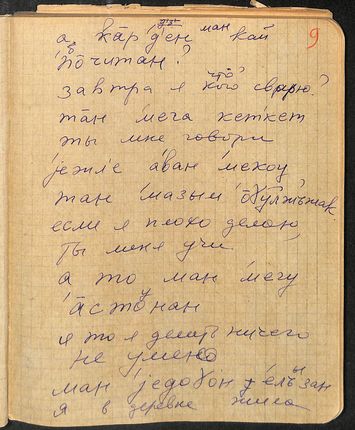 9
а ка̄рд'ен ман кай
по̄читан?
завтра я что кого сварю?
та̄н мега кеткет
ты мне говори
јежл'е аван мекоу
тан мазым о̄ɣӯлжъжак
если я плохо делаю,
ты меня учи.
а то ман мегу
а̄стӯнан
я то я делать ничего
не умею
ман једоɣон д'елъзан
я в деревне жила